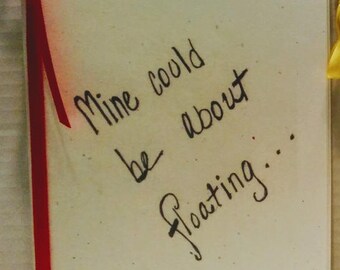 Mine could
be about
floating...